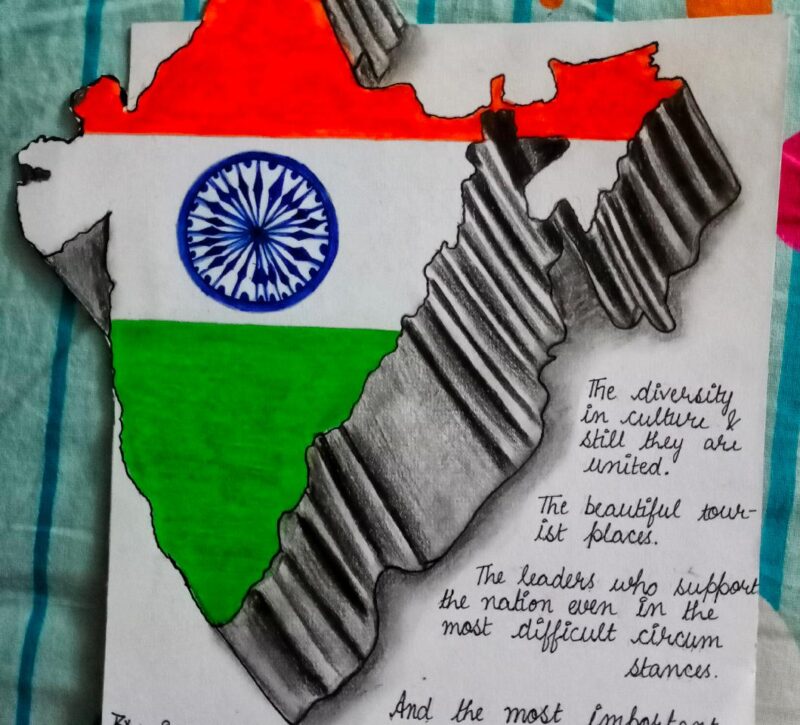 The diversity
in culture &
still they are
united.
The beautiful tour-
ist places.
The leaders who support
the nation even in the
most difficult circum
stances.
And the most important
By